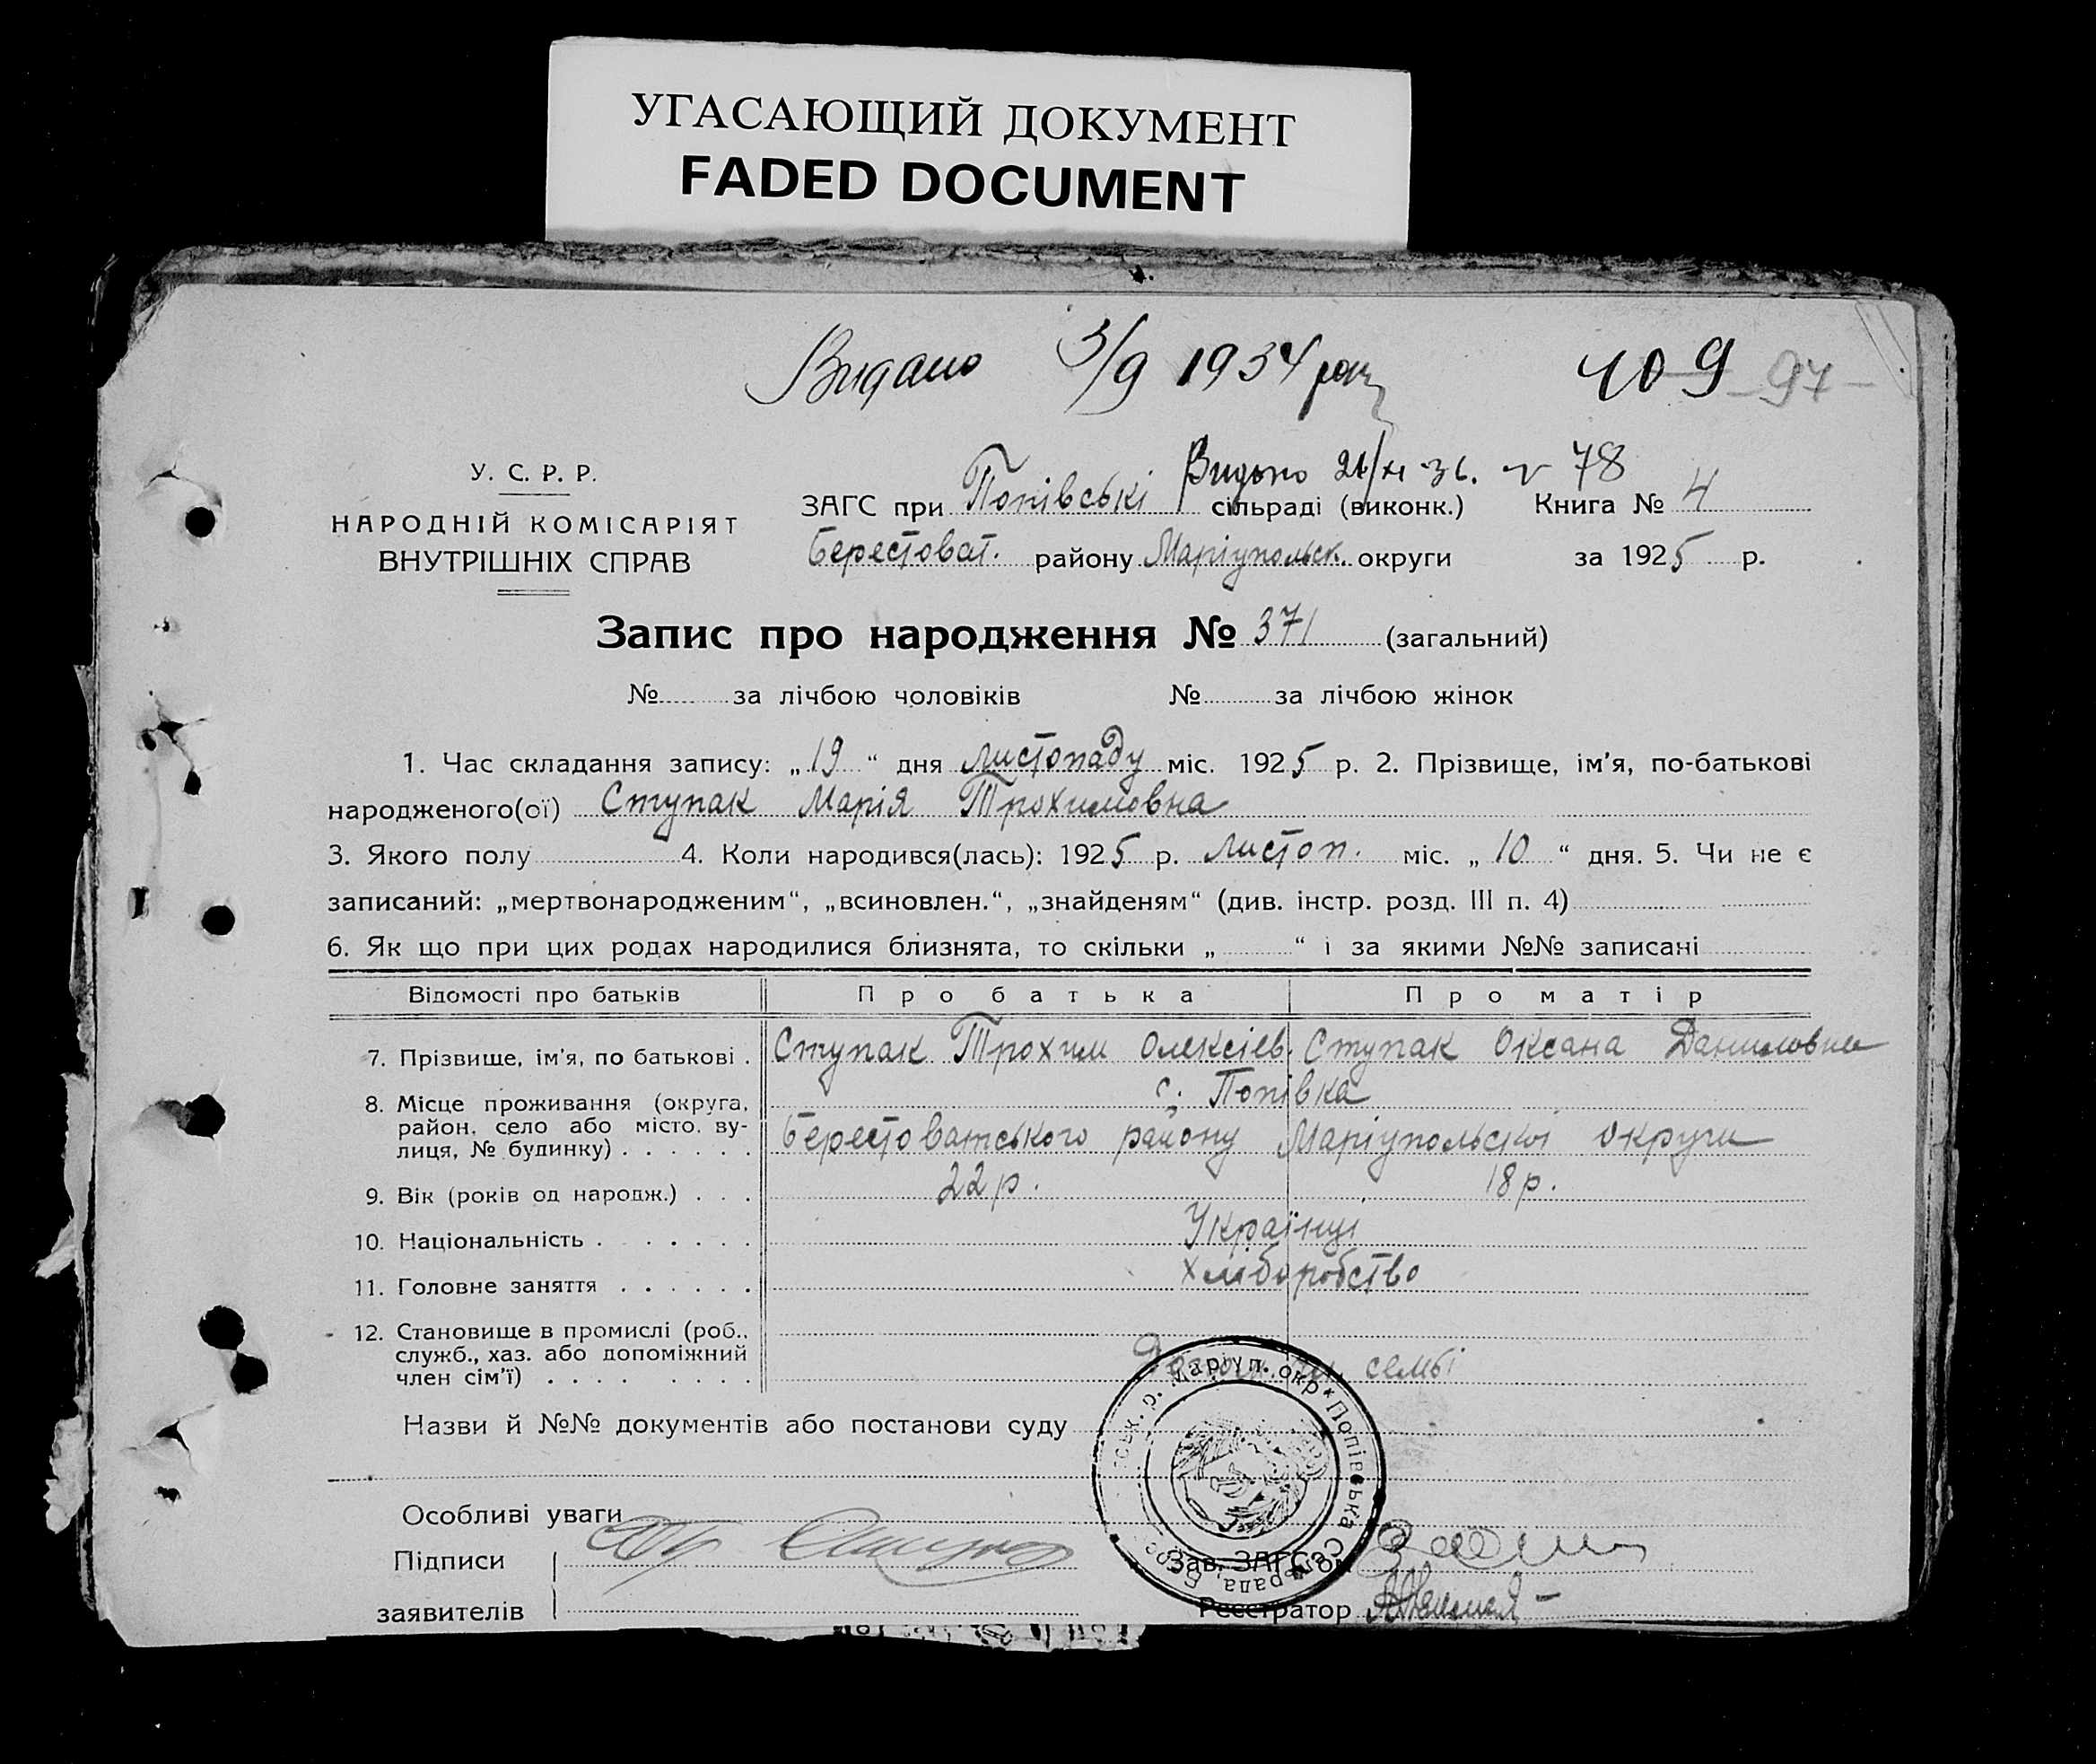 УГАСАЮЩИЙ ДОКУМЕНТ
FADED DOCUMENT
Видано 3/9 1934 року 409 97
Видано 78
У. С. Р. Р.
НАРОДНІЙ КОМІСАРІЯТ
ВНУТРІШНІХ СПРАВ
ЗАГС при Попівські сільраді (виконк.) Книга № 4
Берестоват. району Маріупольск. округи за 1925 р.
Запис про народження № 371 (загальний)
№ за лічбою чоловіків № за лічбою жінок
1. Час складання запису: „19“ дня листопаду міс. 1925 р. 2. Прізвище, ім'я, по-батькові
народженого(ої) Ступак Марія Трохимовна
3. Якого полу 4. Коли народився(лась): 1925 р. листоп. міс. „10“ дня. 5. Чи не є
записаний: „мертвонародженим“, „всиновлен.“, „знайденям“ (див. інстр. розд. III п. 4)
6. Як що при цих родах народилися близнята, то скільки „ “ і за якими №№ записані
Відомості про батьків Про батька Про матір
7. Прізвище, ім'я, по батькові . Ступак Трохим Олексієв. Ступак Оксана Даниловна
8. Місце проживання (округа, район. село або місто. вулиця, № будинку) . . . . . . с. Попівка
Берестоватського району Маріупольскої округи
9. Вік (років од народж.) . . . 22 р. 18 р.
10. Національність . . . . . . . Українці
11. Головне заняття . . . . . . хліборобство
12. Становище в промислі (роб.,
служб., хаз. або допоміжний
член сім'ї) . . . . . . . . семьї
Назви й №№ документів або постанови суду
Маріуп. окр * Попівська Сільрада,
Особливі уваги
Підписи
заявителів
Зав. ЗАГС'ом
Реєстратор